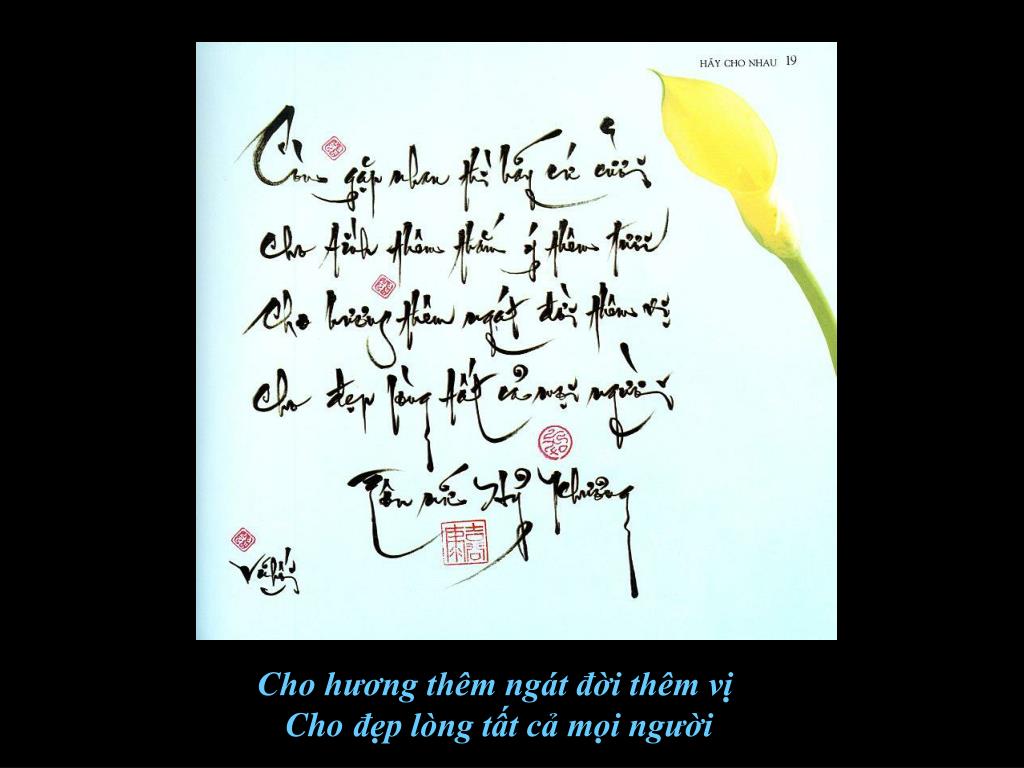 HÃY CHO NHAU 19
Còn gặp nhau thì hãy cứ cười
Cho tình thêm thắm ý thêm tươi
Cho hương thêm ngát đời thêm vị
Cho đẹp lòng tất cả mọi người
Tôn nữ Hỷ Khương
Cho hương thêm ngát đời thêm vị
Cho đẹp lòng tất cả mọi người